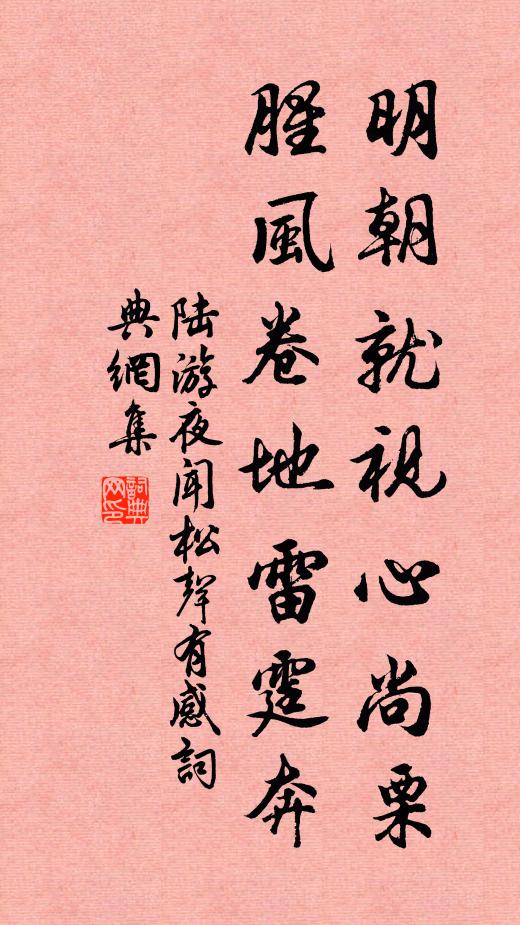 明朝就視心尚栗
腥風卷地雷霆奔
陆游夜闻松聲有感詞
典網集
詞典
网印